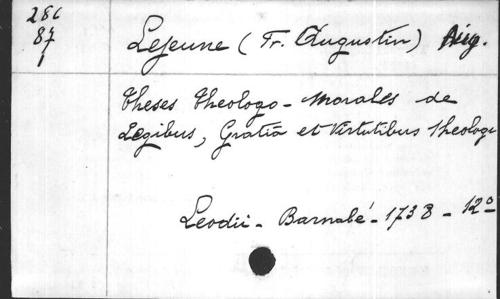 286
87
1
Lejeune (Fr. Augustin) Aug.
Theses Theologo-Morales de
Legibus, Gratiâ et Virtutibus Theologi
Leodii - Barnabé - 1738 - 12º